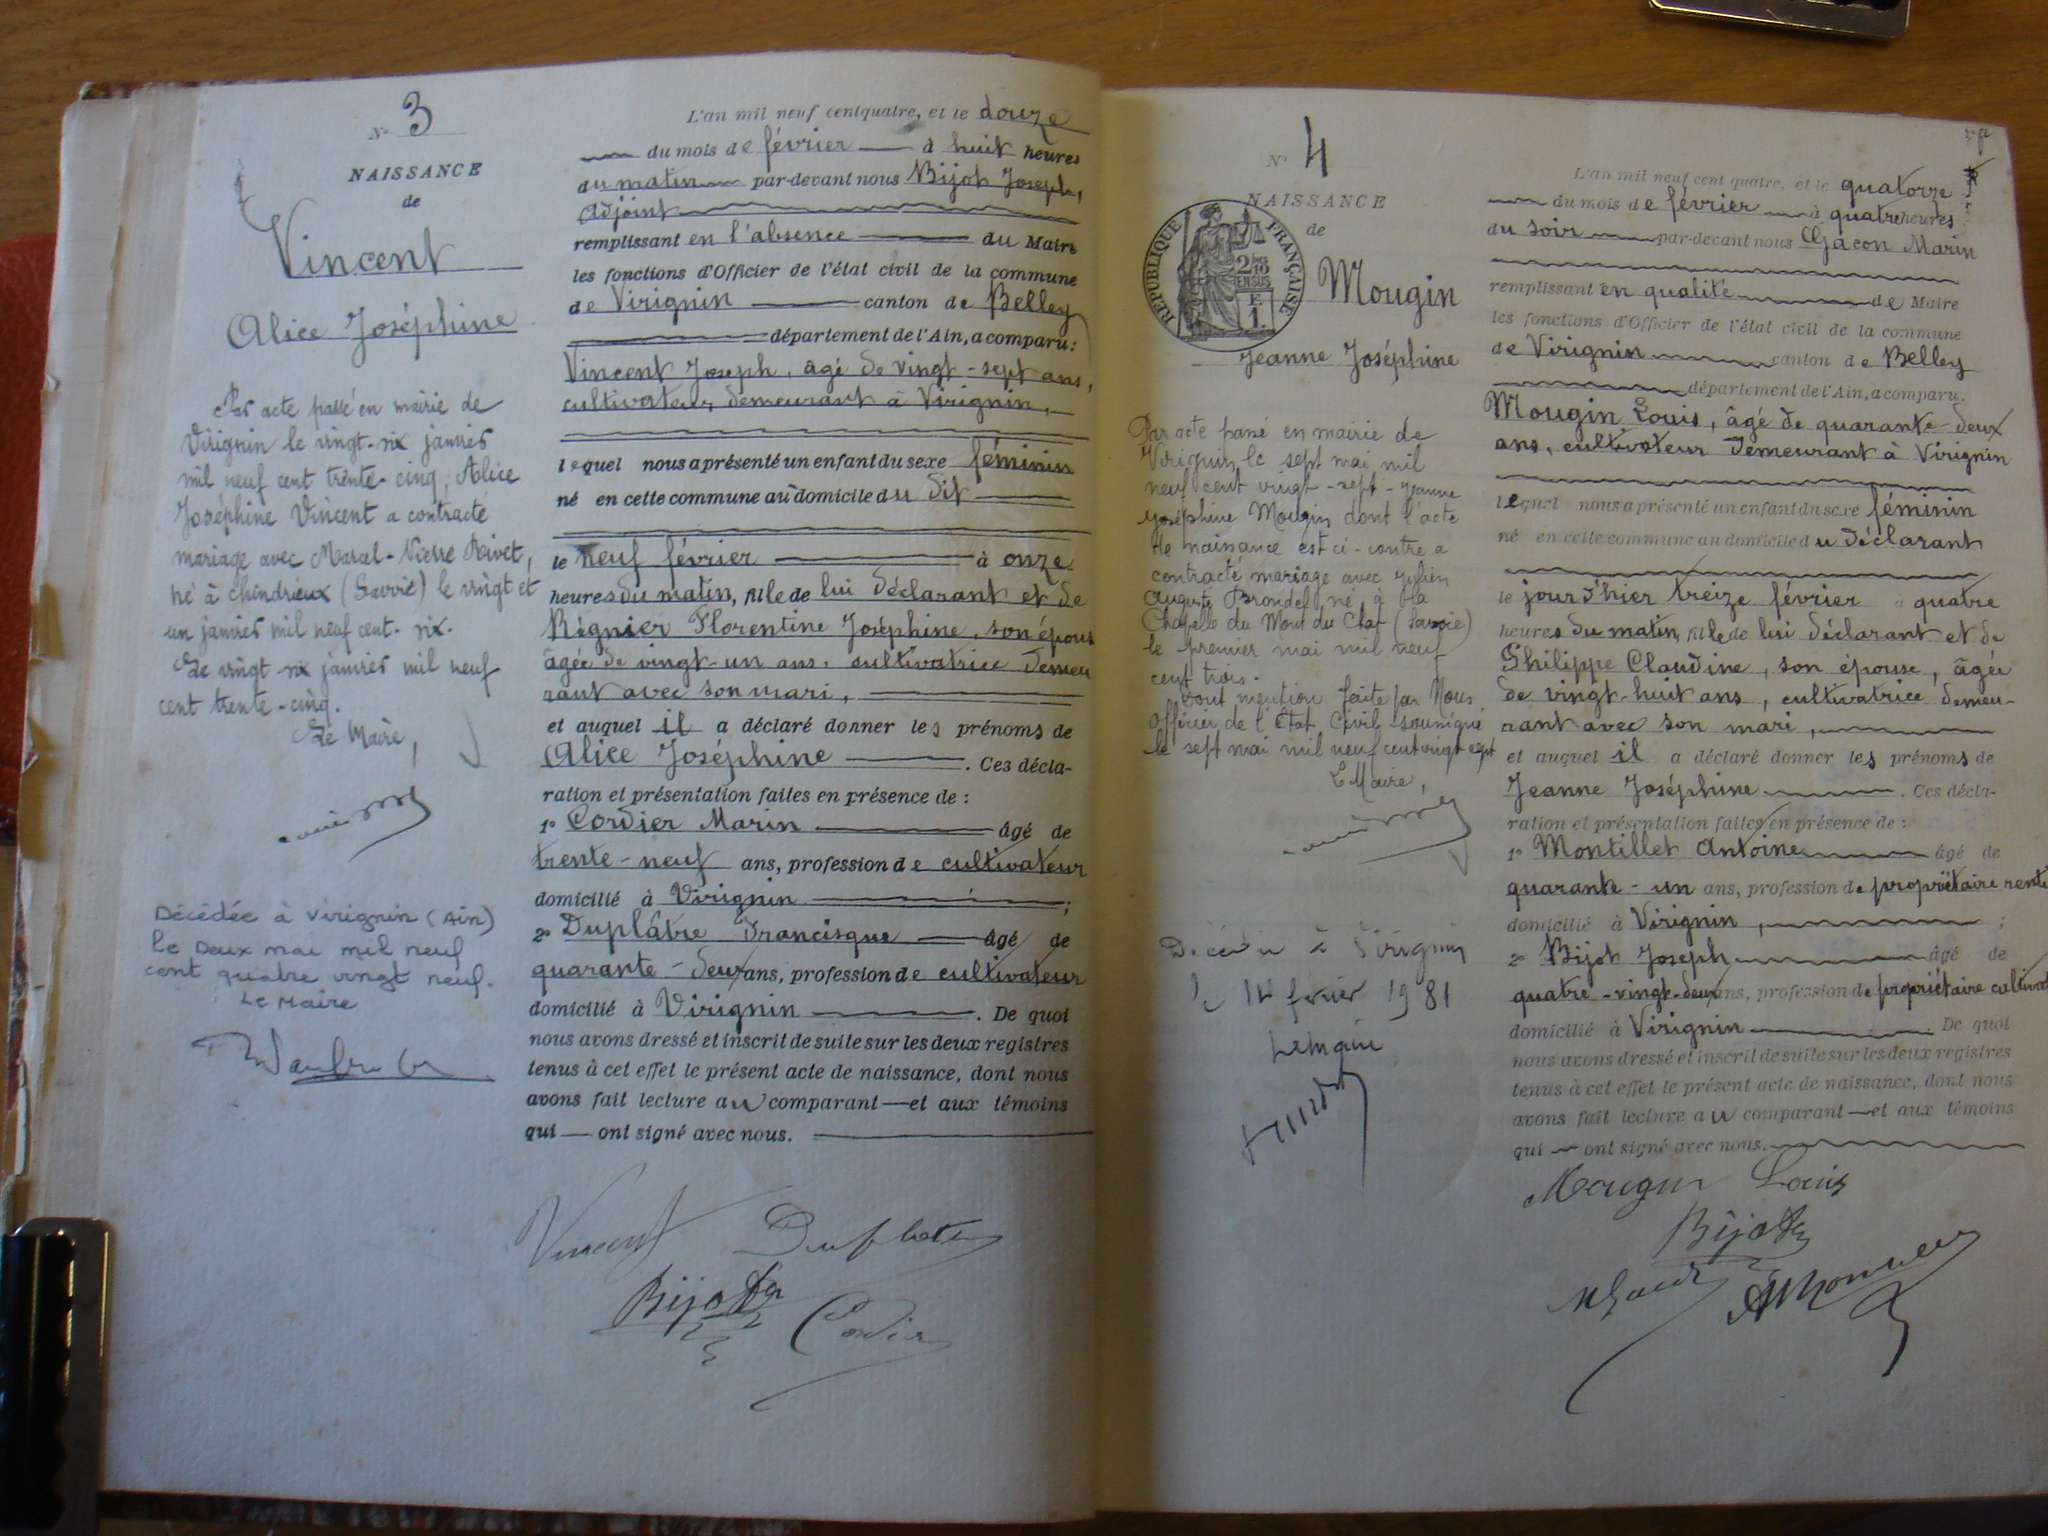 N° 3
NAISSANCE
de
Vincent
Alice Joséphine
Par acte passé en mairie de
Virignin le vingt-six janvier
mil neuf cent trente-cinq, Alice
Joséphine Vincent a contracté
mariage avec Pierre Rivet,
né à Chindrieux (Savoie) le vingt et
un janvier mil neuf cent-six.
Le vingt-six janvier mil neuf
cent trente-cinq.
Le Maire,
Décédée à Virignin (Ain)
le deux mai mil neuf
cent quatre vingt neuf.
Le Maire
L'an mil neuf cent quatre, et le douze
du mois de février à huit heures
du matin par-devant nous Bijot Joseph,
Adjoint
remplissant en l'absence du Maire
les fonctions d'Officier de l'état civil de la commune
de Virignin canton de Belley
département de l'Ain, a comparu:
Vincent Joseph, âgé de vingt-sept ans,
cultivateur, demeurant à Virignin,
lequel nous a présenté un enfant du sexe féminin
né en cette commune au domicile du dit
le neuf février à onze
heures du matin, fille de lui déclarant et de
Régnier Florentine Joséphine, son épouse
âgée de vingt-un ans, cultivatrice demeu
rant avec son mari,
et auquel il a déclaré donner les prénoms de
Alice Joséphine. Ces décla-
ration et présentation faites en présence de :
1° Cordier Marin âgé de
trente-neuf ans, profession de cultivateur
domicilié à Virignin ;
2° Duplâtre Francisque âgé de
quarante-deux ans, profession de cultivateur
domicilié à Virignin. De quoi
nous avons dressé et inscrit de suite sur les deux registres
tenus à cet effet le présent acte de naissance, dont nous
avons fait lecture au comparant — et aux témoins
qui — ont signé avec nous.
Vincent Duplatre
Bijot Jh Cordier
N° 4
NAISSANCE
de
RÉPUBLIQUE FRANÇAISE
2/10 EN SUS
F. 1.
Mougin
Jeanne Joséphine
Par acte passé en mairie de
Virignin, le sept mai mil
neuf cent vingt-sept - Jeanne
Joséphine Mougin dont l'acte
de naissance est ci-contre a
contracté mariage avec Julien
Auguste Brondel né à La
Chapelle du Mont du Chat (Savoie)
le premier mai mil neuf
cent trois.
Dont mention faite par Nous
Officier de l'Etat Civil soussigné
le sept mai mil neuf cent vingt sept
Le Maire,
Décédée à Virignin
le 14 février 1981
Le maire
L'an mil neuf cent quatre, et le quatorze
du mois de février à quatre heures
du soir par-devant nous Gacon Marin
remplissant en qualité de Maire
les fonctions d'Officier de l'état civil de la commune
de Virignin canton de Belley
département de l'Ain, a comparu.
Mougin Louis, âgé de quarante-deux
ans, cultivateur demeurant à Virignin
lequel nous a présenté un enfant du sexe féminin
né en cette commune au domicile du déclarant
le jour d'hier treize février à quatre
heures du matin, fille de lui déclarant et de
Philippe Claudine, son épouse, âgée
de vingt-huit ans, cultivatrice demeu-
rant avec son mari,
et auquel il a déclaré donner les prénoms de
Jeanne Joséphine. Ces décla-
ration et présentation faites en présence de :
1° Montillet Antoine âgé de
quarante-un ans, profession de propriétaire rentier
domicilié à Virignin, ;
2° Bijot Joseph âgé de
quatre-vingt-deux ans, profession de propriétaire cultivat
domicilié à Virignin. De quoi
nous avons dressé et inscrit de suite sur les deux registres
tenus à cet effet le présent acte de naissance, dont nous
avons fait lecture au comparant — et aux témoins
qui — ont signé avec nous.
Mougin Louis
Bijot Jh